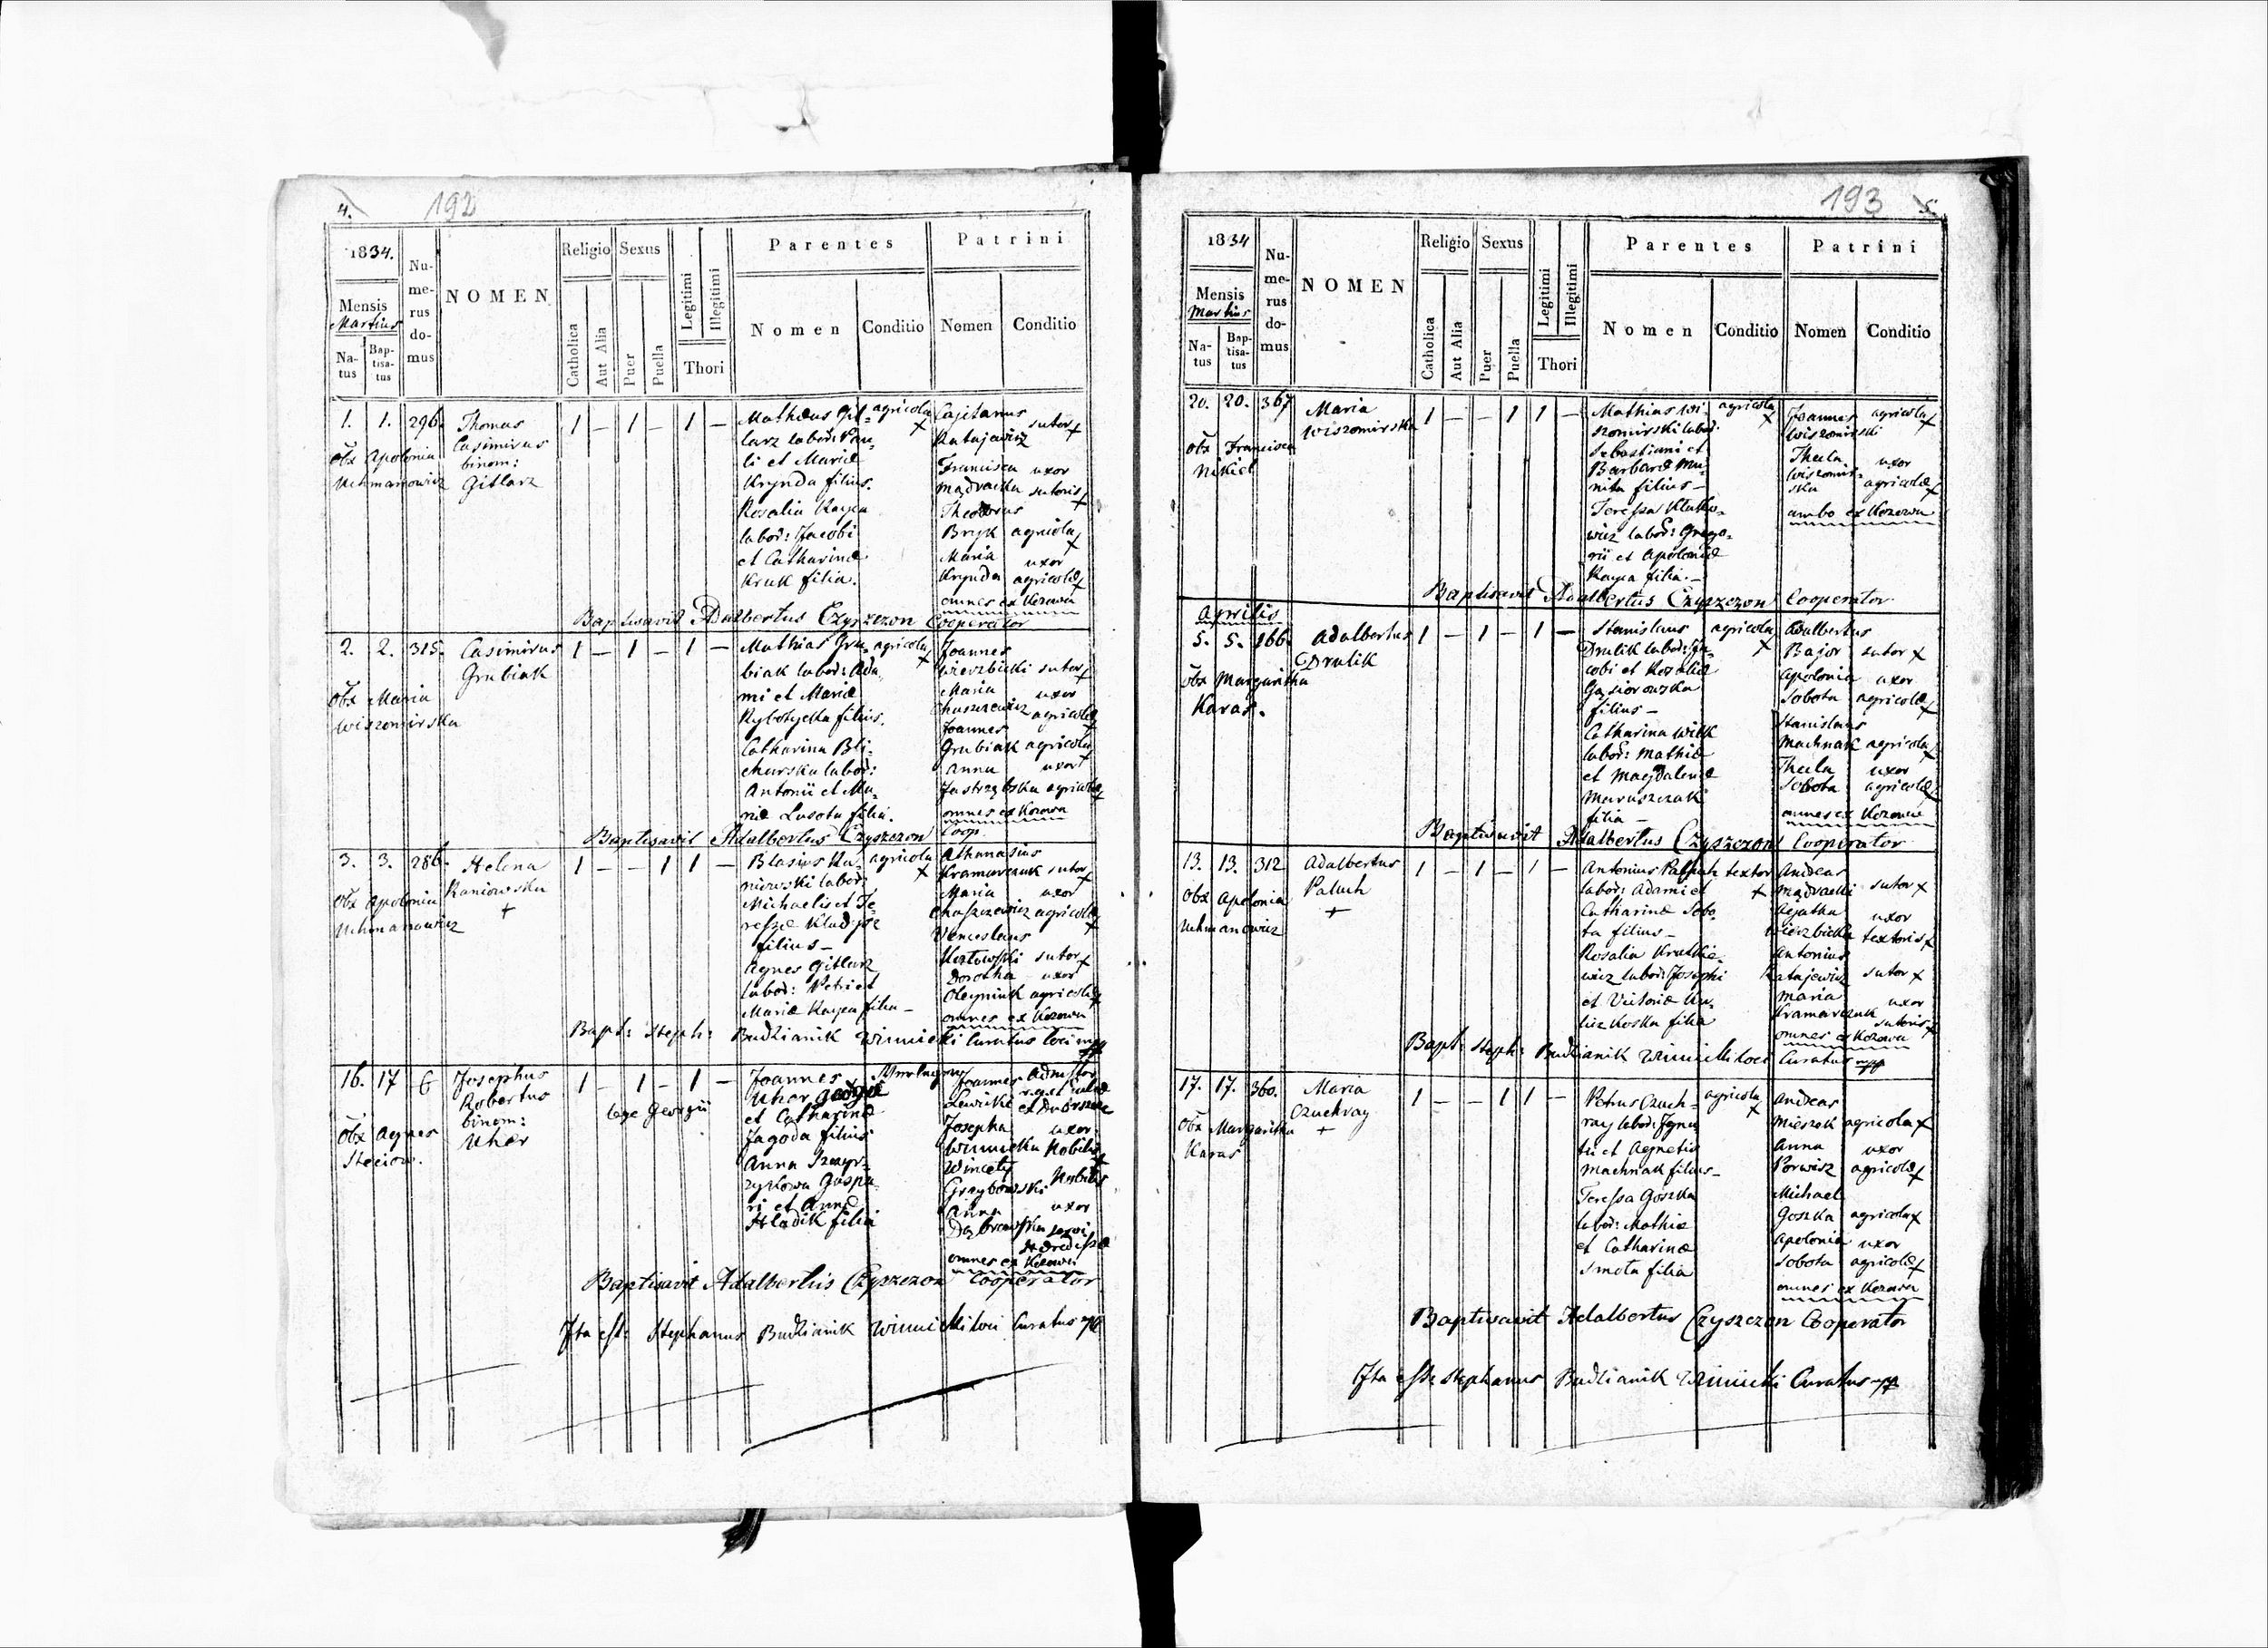 4.
192
1834.
Mensis
Martius
Natus
Baptisatus
Numerus domus
NOMEN
Religio
Catholica
Aut Alia
Sexus
Puer
Puella
Legitimi
Illegitimi
Thori
Parentes
Nomen
Conditio
Patrini
Nomen
Conditio
1. 1. 296.
Thomas
Casimirus
binom:
Gitlarz
Obx Apolonia
Uchmanowicz
1 – 1 – 1 –
Mathæus Git-
larz labor: Pau-
li et Mariæ
Krynda filius.
Rosalia Kaysa
labor: Jacobi
et Catharinæ
Kruk filia.
agricola
Cajetanus
Ratajewicz sutor
Francisca uxor
Mądracka sutoris
Theodorus
Bryk agricola
Maria uxor
Krynda agricolæ
omnes ex Kozowa
Baptisavit Adalbertus Czyszczon Cooperator
2. 2. 315.
Casimirus
Grubiak
Obx Maria
Wiszomirska
1 – 1 – 1 –
Mathias Gru-
biak labor: Ada-
mi et Mariæ
Rybotycka filius.
Catharina Bli-
charska labor:
Antonii et Ma-
riæ Lasota filia.
agricola
Joannes
Wierzbicki sutor
Maria uxor
agricolæ
Joannes
Grubiak agricola
Anna uxor
Jastrzębska agricolæ
omnes ex Kozowa
Baptisavit Adalbertus Czyszczon Coop.
3. 3. 286.
Helena
Raniowska
+
Obx Apolonia
Uchmanowicz
1 – – 1 1 –
Blasius Ra-
niowski labor:
Michaelis et Te-
filius –
Agnes Gitlarz
labor: Petri et
Mariæ Kaysa filia –
agricola
Athanasius
Kramarczuk sutor
Maria uxor
agricolæ
Venceslaus
Kozłowski sutor
Dorothea uxor
Oleyniuk agricolæ
omnes ex Kozowa
Bapt: Steph: Budlianik Winnicki Curatus loci mpp
16. 17 6
Josephus
Robertus
binom:
Uher
Obx Agnes
Steciow.
1 – 1 – 1 –
lege Georgii
Joannes
Uher
et Catharinæ
Jagoda filius
Anna
Gaspa-
ri et Annæ
Hladik filia
Joannes
Lewicki
Josepha uxor
Winnicka Nobilis
Wincety
Grzybowski Nobilis
Anna uxor
omnes ex Kozowa
Baptisavit Adalbertus Czyszczon Cooperator
Ita est: Stephanus Budlianik Winnicki loci Curatus mpp
193
5.
1834
Mensis
Martius
Natus
Baptisatus
Numerus domus
NOMEN
Religio
Catholica
Aut Alia
Sexus
Puer
Puella
Legitimi
Illegitimi
Thori
Parentes
Nomen
Conditio
Patrini
Nomen
Conditio
20. 20. 367
Maria
Wiszomirska
Obx Francisca
Nikiel
1 – – 1 1 –
Mathias Wi-
szomirski labor:
Sebastiani et
Barbaræ Mu-
nita filius –
Teressa Klutko-
wicz labor: Grego-
rii et Apoloniæ
Kaysa filia. –
agricola
Joannes agricola
Wiszomirski
Thecla uxor
Wiszomir-
ska agricolæ
ambo ex Kozowa
Baptisavit Adalbertus Czyszczon Cooperator
Aprilis
5. 5. 166.
Adalbertus
Drulik
Obx Margaritha
Karas.
1 – 1 – 1 –
Stanislaus
Drulik labor: Ja-
cobi et Rozaliæ
Gąsiorowska
filius –
Catharina Wilk
labor: Mathiæ
et Magdalenæ
Maruszczak
filia –
agricola
Adalbertus
Bajor sutor
Apolonia uxor
Sobota agricolæ
Stanislaus
Machnak agricola
Thecla uxor
Sobota agricolæ
omnes ex Kozowa
Baptisavit Adalbertus Czyszczon Cooperator
13. 13. 312
Adalbertus
Paluch
+
Obx Apolonia
Uchmanowicz
1 – 1 – 1 –
Antonius Paluch textor
labor: Adami et
Catharinæ Sobo-
ta filius –
Rosalia Krutkie-
wicz labor: Josephi
et Victoriæ Ku-
filia
Andreas
Mądracki sutor
Agatha uxor
Wierzbicka textoris
Antonius
Ratajewicz sutor
Maria uxor
Kramarczuk sutoris
omnes ex Kozowa
Bapt: Steph: Budlianik Winnicki loci Curatus mpp
17. 17. 360.
Maria
Czuchray
+
Obx Margaritha
Karas
1 – – 1 1 –
Petrus Czuch-
ray labor: Igna-
tii et Agnetis
Machnak filius –
Teressa Goszka
labor: Mathiæ
et Catharinæ
Smota filia
agricola
Andreas
Mieszek agricola
Anna uxor
Porwisz agricolæ
Michael
Goszka agricola
Apolonia uxor
Sobota agricolæ
omnes ex Kozowa
Baptisavit Adalbertus Czyszczon Cooperator
Ita est: Stephanus Budlianik Winnicki Curatus mpp